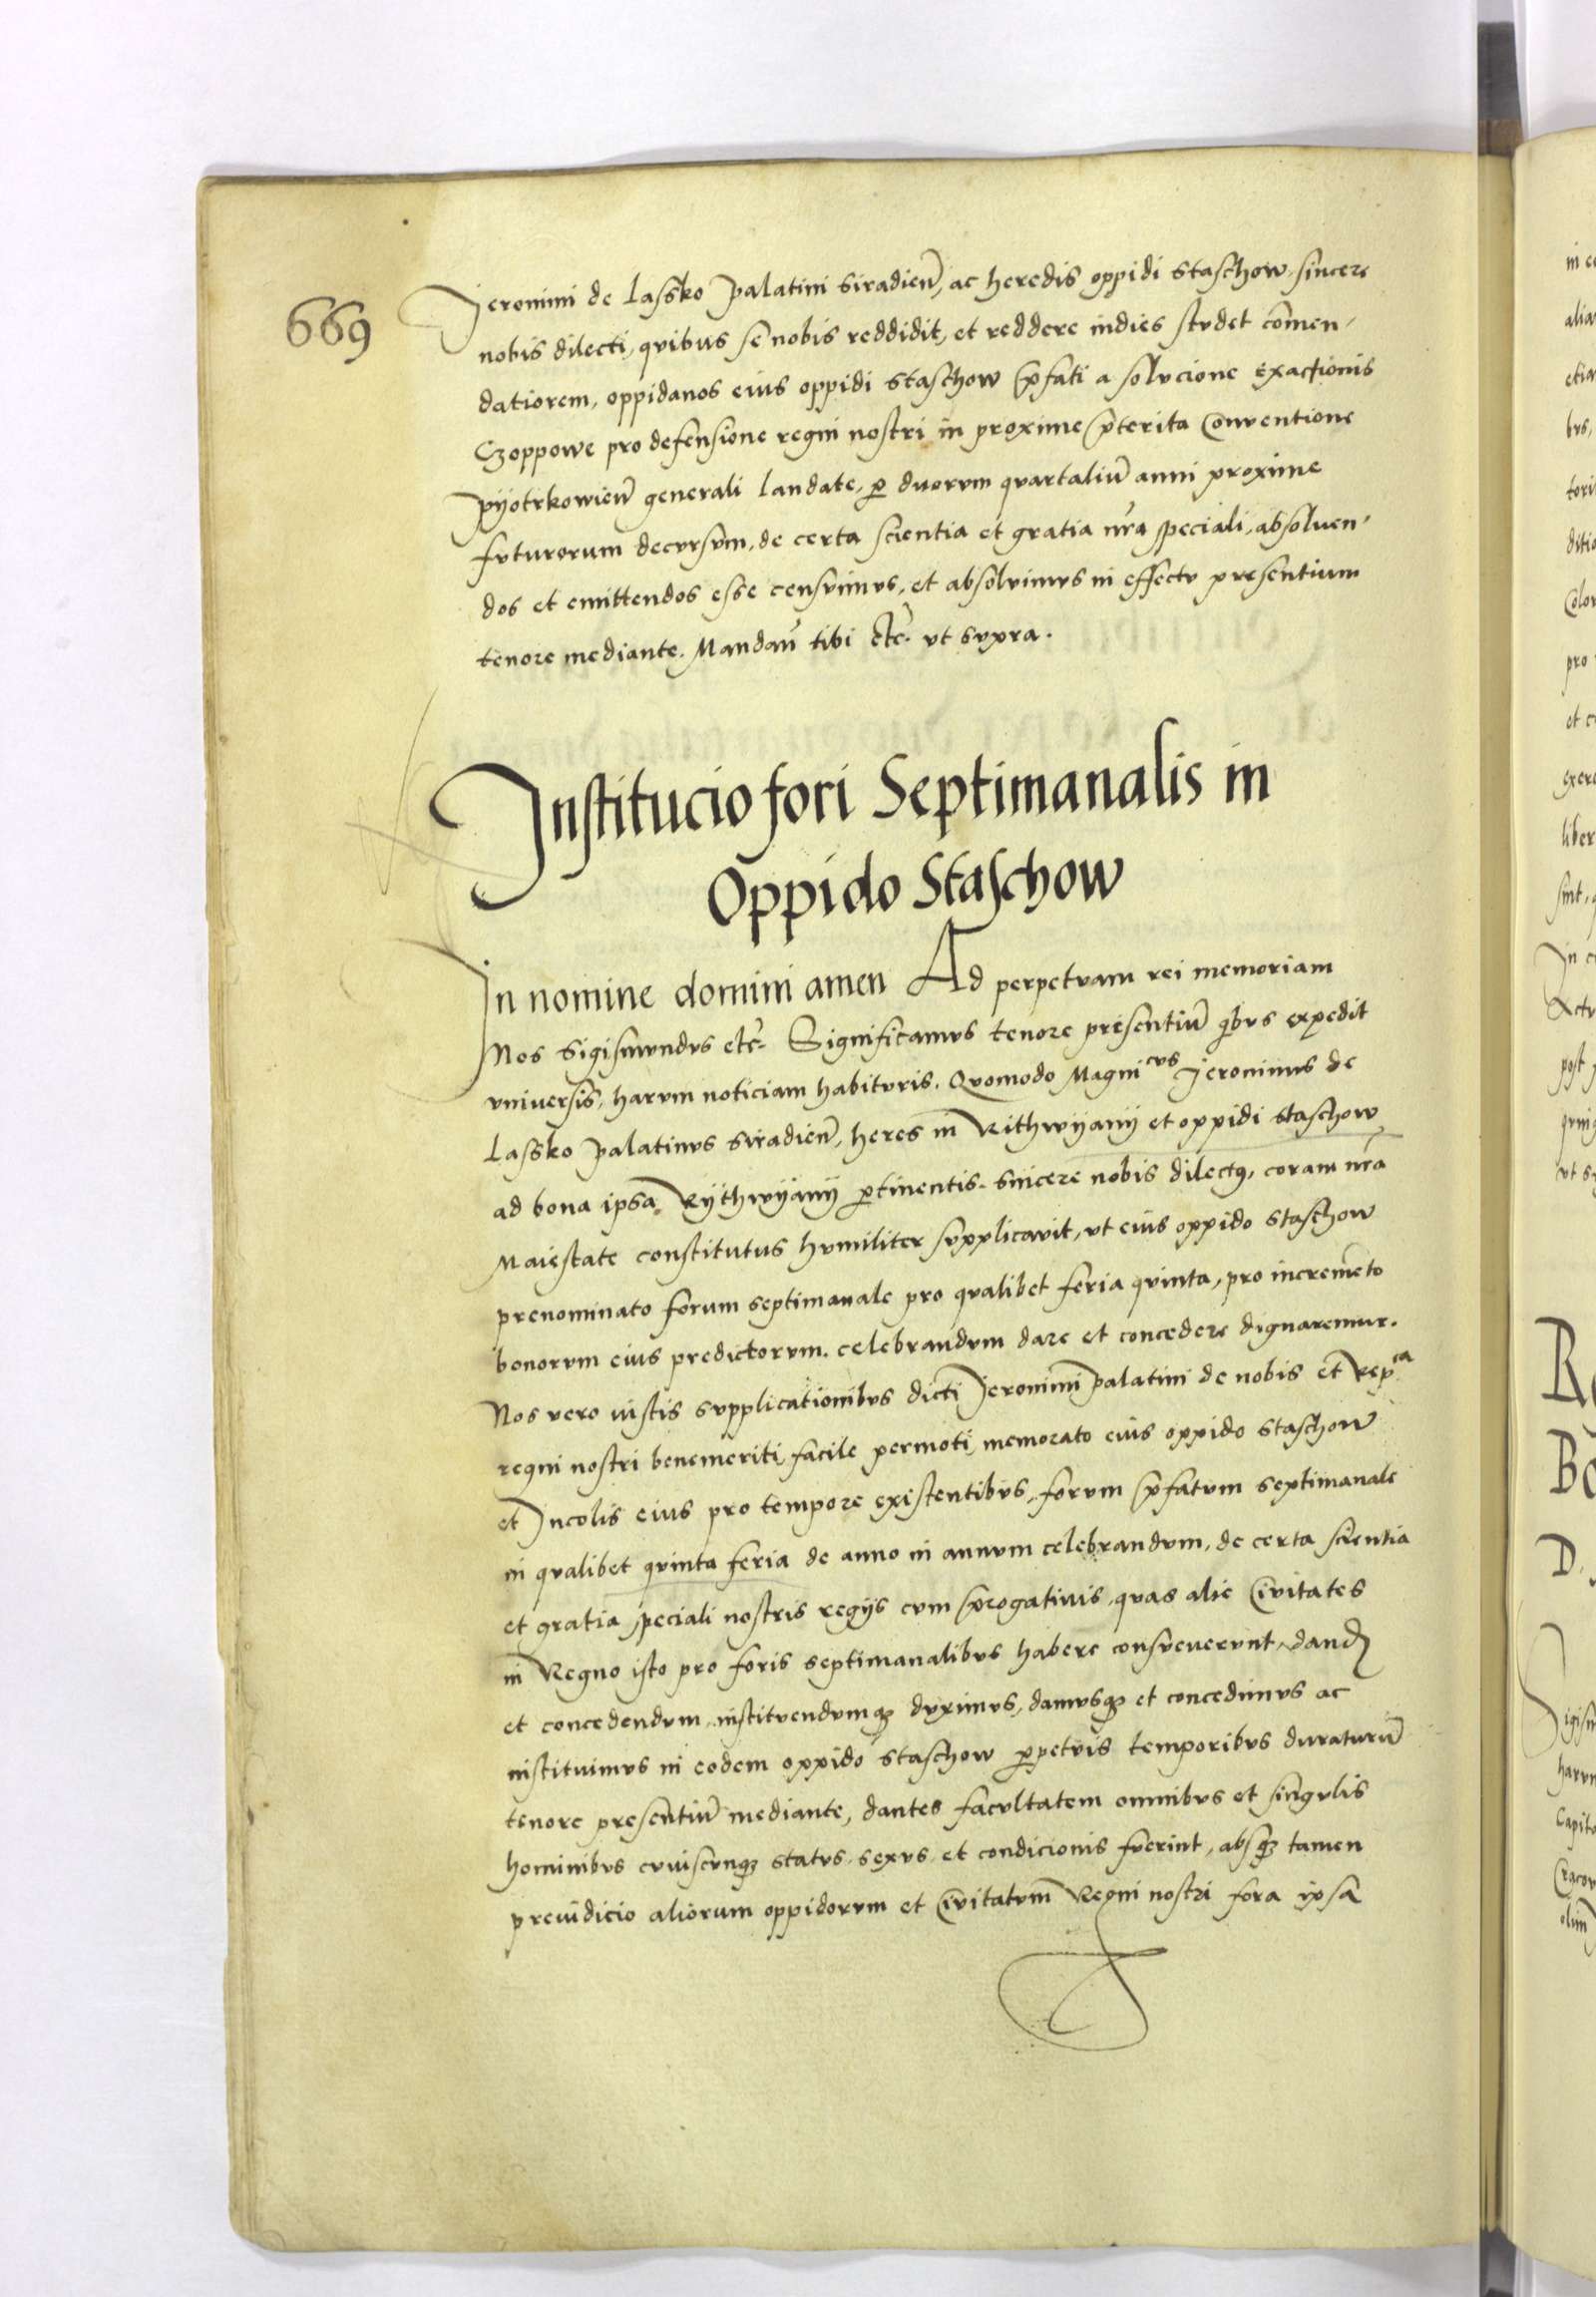 669
Jeronimi de Lassko Palatini Siradien̄, ac heredis oppidi Staschow, sincere
nobis dilecti, quibus se nobis reddidit, et reddere indies stvdet com̄en-
datiorem, oppidanos eius oppidi Staschow p̄fati a solvcione exactionis
Czoppowe pro defensione regni nostri in proxime p̄terita Conventione
Pyotrkowien̄ generali laudate, ꝑ dvorvm qvartaliū anni proxime
fvturorum decvrsvm, de certa scientia et gratia nr̄a speciali, absoluen-
dos et emittendos esse censvimvs, et absolvimvs in effectv presentium
tenore mediante. Mandan̄ tibi etc̄. vt svpra.
Institucio fori Septimanalis in
Oppido Staschow
In nomine domini amen Ad perpetvam rei memoriam
Nos Sigismvndvs etc̄. Significamvs tenore presentiū qⁱbvs expedit
vniversis, harvm noticiam habitvris. Qvomodo Magniᶜᵛˢ Jeronimvs de
Lassko Palatinvs Siradien̄, heres in Rithwyany et oppidi Staschow
ad bona ipsa Rythwyany ꝑtinentis. sincere nobis dilectꝰ, coram nr̄a
Maiestate constitutus hvmiliter svpplicavit, vt eius oppido Staschow
prenominato forum septimanale pro qvalibet feria qvinta, pro incremēto
bonorvm eius predictorvm. celebrandvm dare et concedere dignaremur.
Nos vero iustis svpplicationibvs dicti Jeronimi Palatini de nobis et Repᶜᵃ
regni nostri benemeriti, facile permoti, memorato eius oppido Staschow
et Incolis eius pro tempore existentibvs, forvm p̄fatvm septimanale
in qvalibet qvinta feria de anno in annvm celebrandvm, de certa scientia
et gratia speciali nostris regijs cvm p̄rogativis, qvas alie Civitates
in Regno isto pro foris septimanalibvs habere consveuervnt, dandꝫ
et concedendvm, institvendvmqꝫ dvximvs, damvsqꝫ et concedimvs ac
institvimvs in eodem oppido Staschow ꝑpetvis temporibvs duraturū
tenore presentiū mediante, dantes facvltatem omnibvs et singvlis
hominibvs cvivscvnqꝫ statvs, sexvs, et condicionis fverint, absqꝫ tamen
preivdicio aliorum oppidorvm et Civitatvm Regni nostri fora ipsa